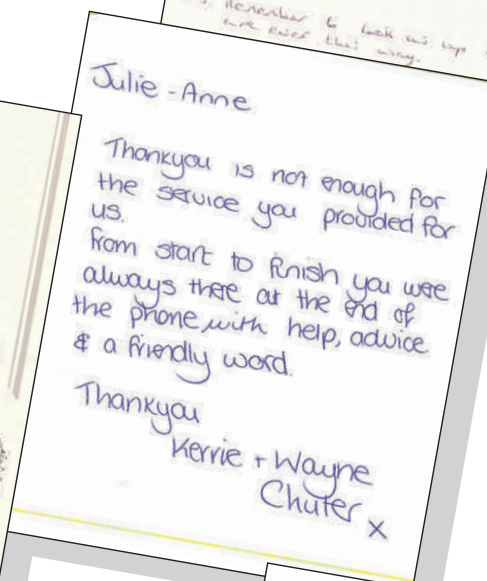 Remember to look us up
are ever this way.
Julie-Anne
Thankyou is not enough for
the service you provided for
us.
From start to finish you were
always there at the end of
the phone with help, advice
& a friendly word.
Thankyou
Kerrie + Wayne
Chuter x